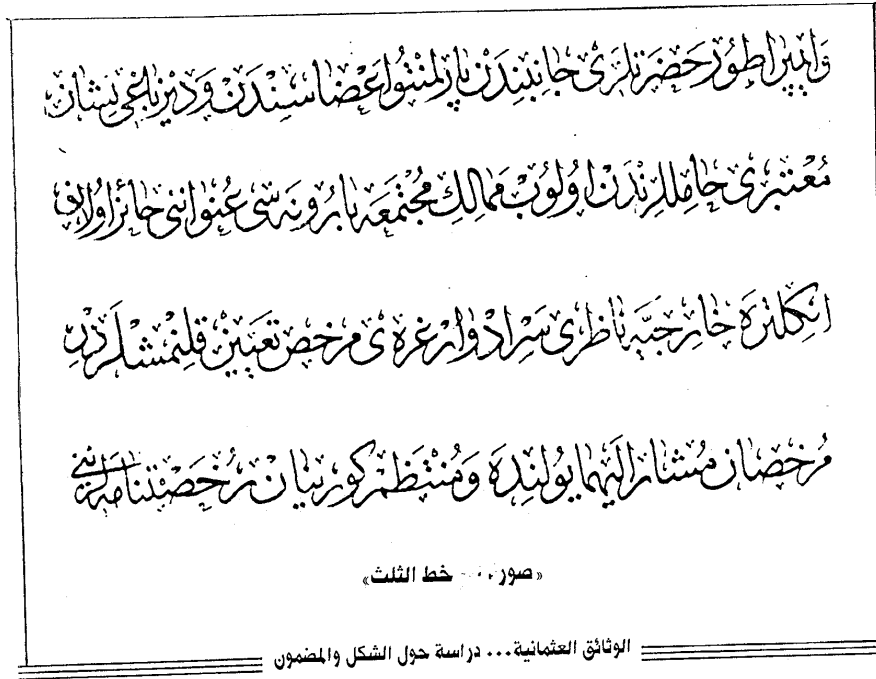 وايمپراطور حضرتلرى جانبندن پارلمنتو اعضاسندن و ديزباغى نشان
معتبرى حامللرندن اولوب ممالك مجتمعه بارونه سى عنوانى حائز اولان
انكلتره خارجيه ناظرى سر ادوارغره ى مرخص تعيين قلنمشلردر
مرخصان مشار اليهما يولنده ومنتظم كورينان رخصتنامه لرينى
«صور خط الثلث»
الوثائق العثمانية... دراسة حول الشكل والمضمون